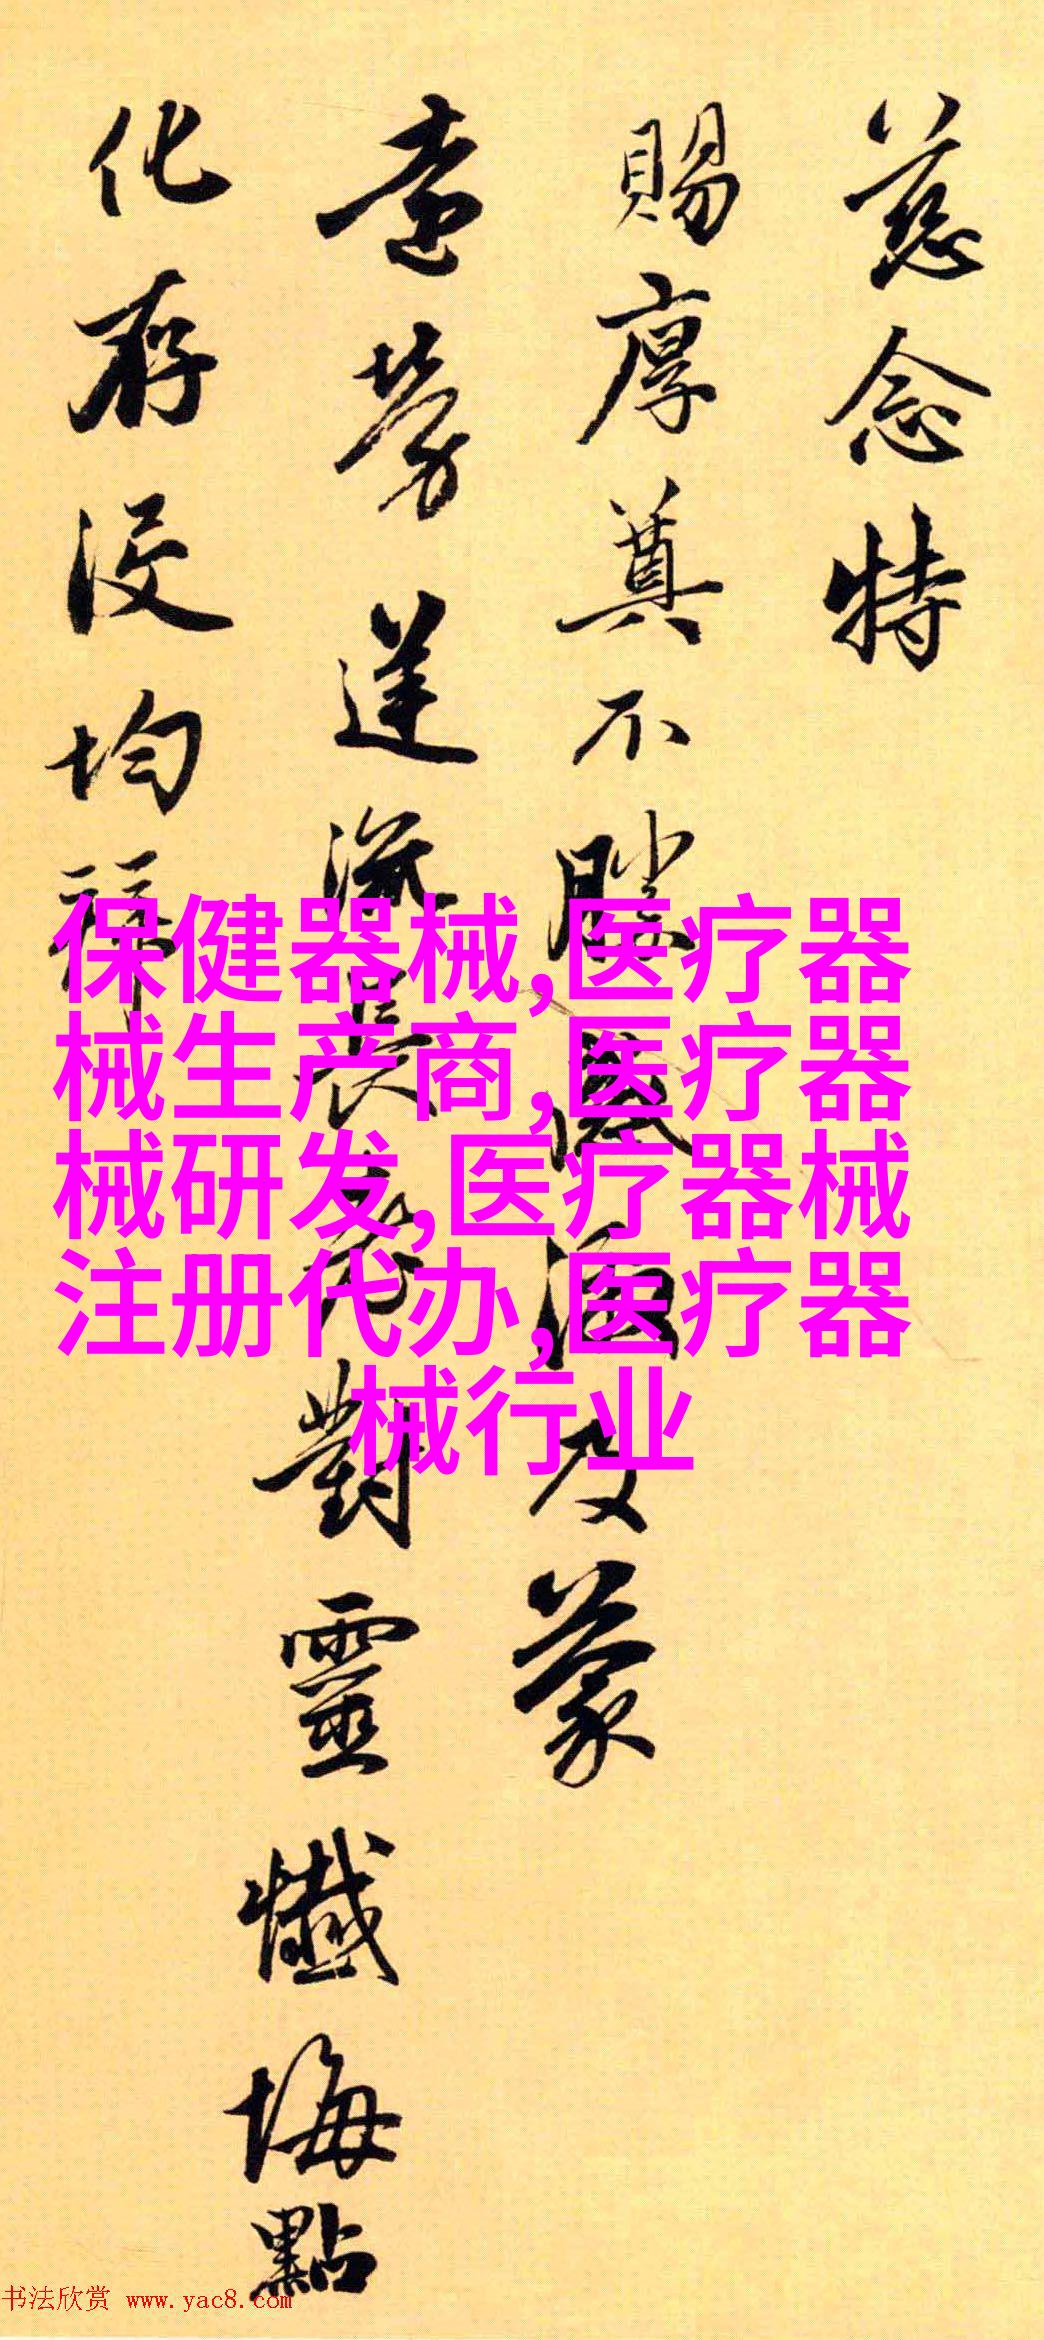 慈念特
賜厚奠不勝感及蒙
勞長老對靈懺悔點
化存没均
保健器械,医疗器
械生产商,医疗器
械研发,医疗器械
注册代办,医疗器
械行业
书法欣赏 www.yac8.com